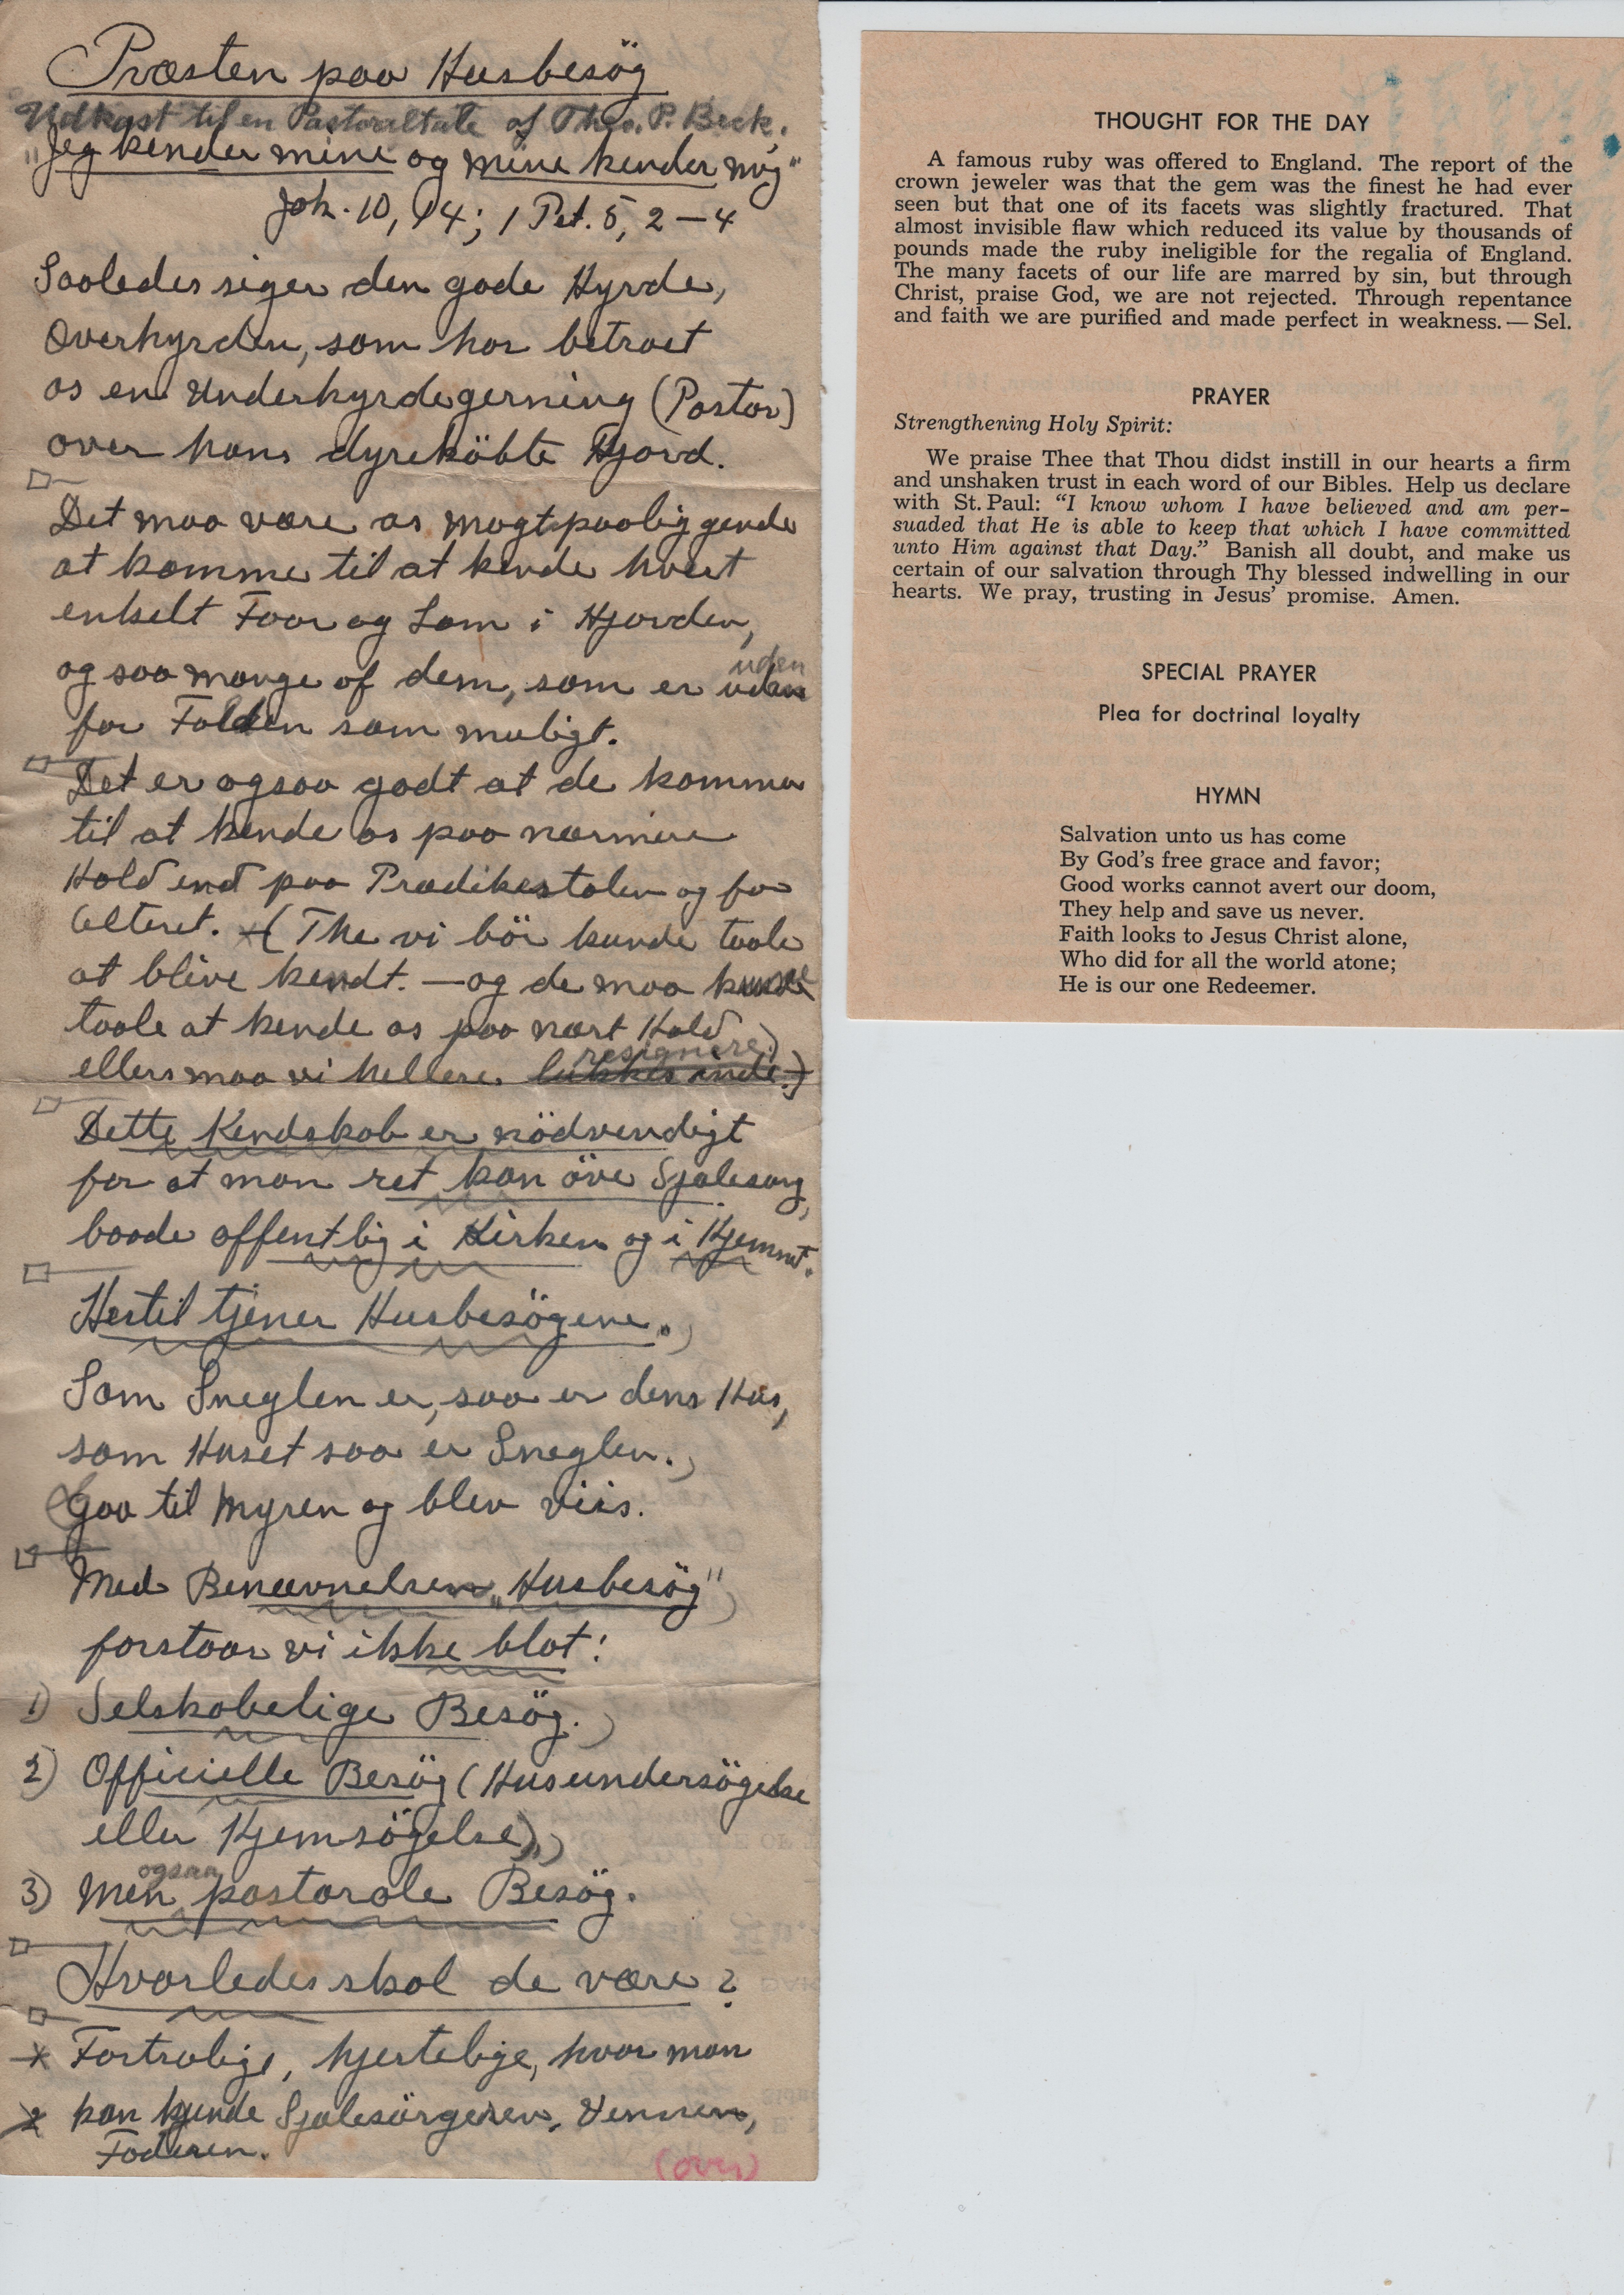 Præsten paa Husbesög
Udkast til en Pastoraltale af Theo. P. Beck.
"Jeg kender mine og mine kender mig"
Joh. 10, 14; 1 Pet. 5, 2-4
Saaledes siger den gode Hyrde,
Overhyrden, som har betroet
os en Underhyrdegerning (Pastor)
over hans dyreköbte Hjord.
Det maa være os magtpaaliggende
at komme til at kende hvert
enkelt Faar og Lam i Hjorden,
uden
og saa mange af dem, som er uden
for Folden som muligt.
Det er ogsaa godt at de kommer
til at kende os paa nærmere
Hold end paa Prædikestolen og for
Alteret. (Thi vi bör kunde taale
at blive kendt. — og de maa kunde
taale at kende os paa nært Hold
resignere.)
ellers maa vi hellere lukkes inde.)
Dette Kendskab er nödvendigt
for at man ret kan öve Sjælesorg,
baade offentlig i Kirken og i Hjemmet.
Hertil tjener Husbesögene.
Som Sneglen er, saa er dens Hus,
som Huset saa er Sneglen.
Gaa til Myren og blev viis.
Med Benævnelsen "Husbesög"
forstaar vi ikke blot:
1) Selskabelige Besög.
2) Officielle Besög (Husundersögelse
eller Hjemsögelse),
ogsaa
3) Men pastorale Besög.
Hvorledes skal de være?
Fortrolige, hjertelige, hvor man
kan kjende Sjælesörgeren, Vennen,
Faderen.
(over)
THOUGHT FOR THE DAY
A famous ruby was offered to England. The report of the
crown jeweler was that the gem was the finest he had ever
seen but that one of its facets was slightly fractured. That
almost invisible flaw which reduced its value by thousands of
pounds made the ruby ineligible for the regalia of England.
The many facets of our life are marred by sin, but through
Christ, praise God, we are not rejected. Through repentance
and faith we are purified and made perfect in weakness. — Sel.
PRAYER
Strengthening Holy Spirit:
We praise Thee that Thou didst instill in our hearts a firm
and unshaken trust in each word of our Bibles. Help us declare
with St. Paul: "I know whom I have believed and am per-
suaded that He is able to keep that which I have committed
unto Him against that Day." Banish all doubt, and make us
certain of our salvation through Thy blessed indwelling in our
hearts. We pray, trusting in Jesus' promise. Amen.
SPECIAL PRAYER
Plea for doctrinal loyalty
HYMN
Salvation unto us has come
By God's free grace and favor;
Good works cannot avert our doom,
They help and save us never.
Faith looks to Jesus Christ alone,
Who did for all the world atone;
He is our one Redeemer.